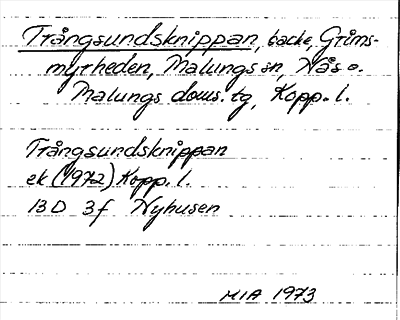 Trångsundsknippan, backe, Gråms-
myrheden, Malungs sn, Nås o.
Malungs doms. tg, Kopp. l.
Trångsundsknippan
ek (1972) Kopp. l.
13D 3f Nyhusen
MIA 1973